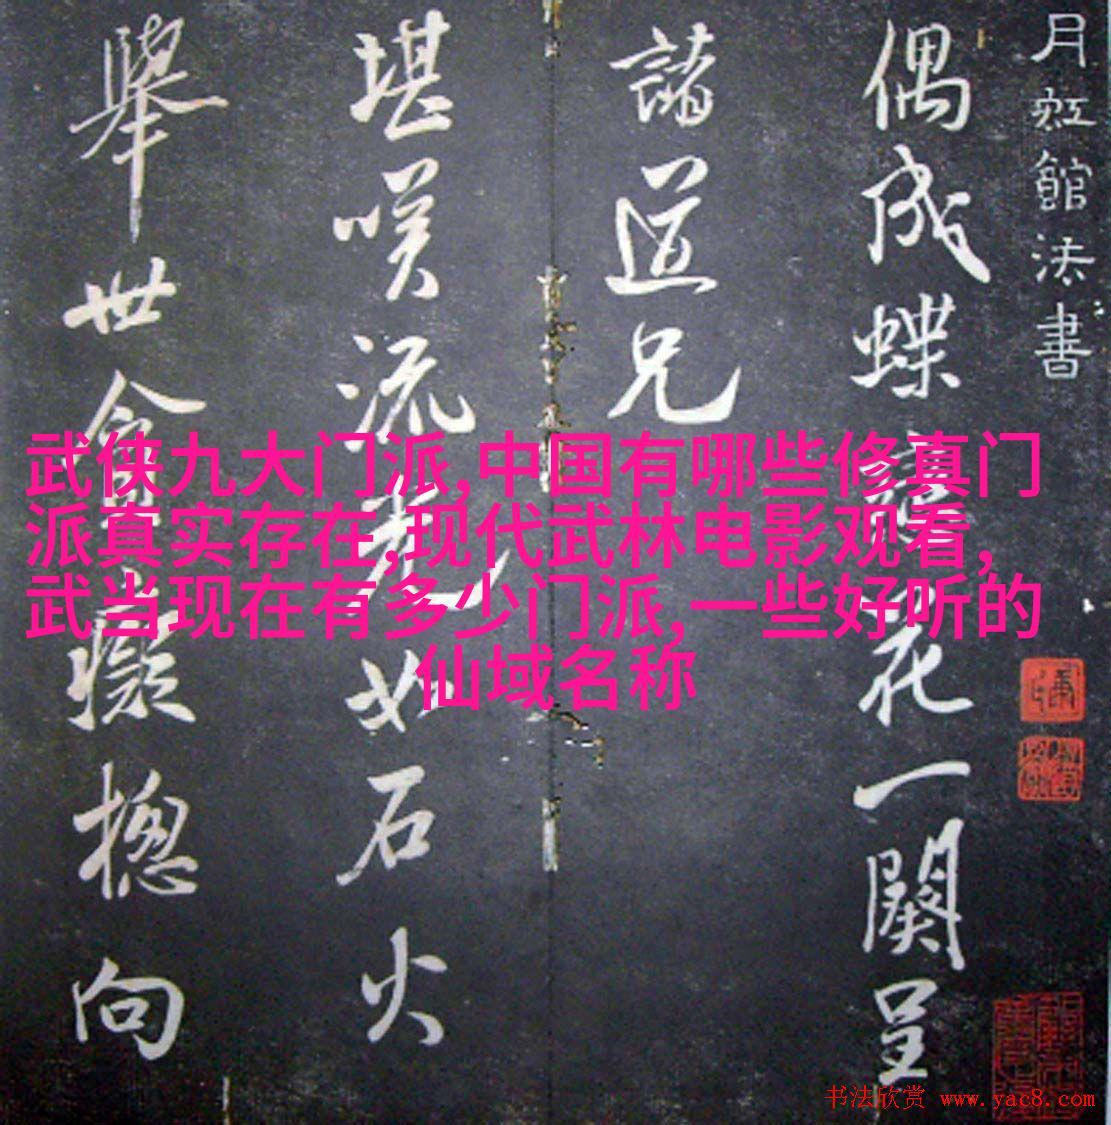 月虹館法書
偶成蝶戀花一闋呈
諸道兄
堪嘆流光如石火
舉世貪癡揔向
武侠九大门派,中国有哪些修真门
派真实存在,现代武林电影观看,
武当现在有多少门派,一些好听的
仙域名称
书法欣赏 www.yac8.com